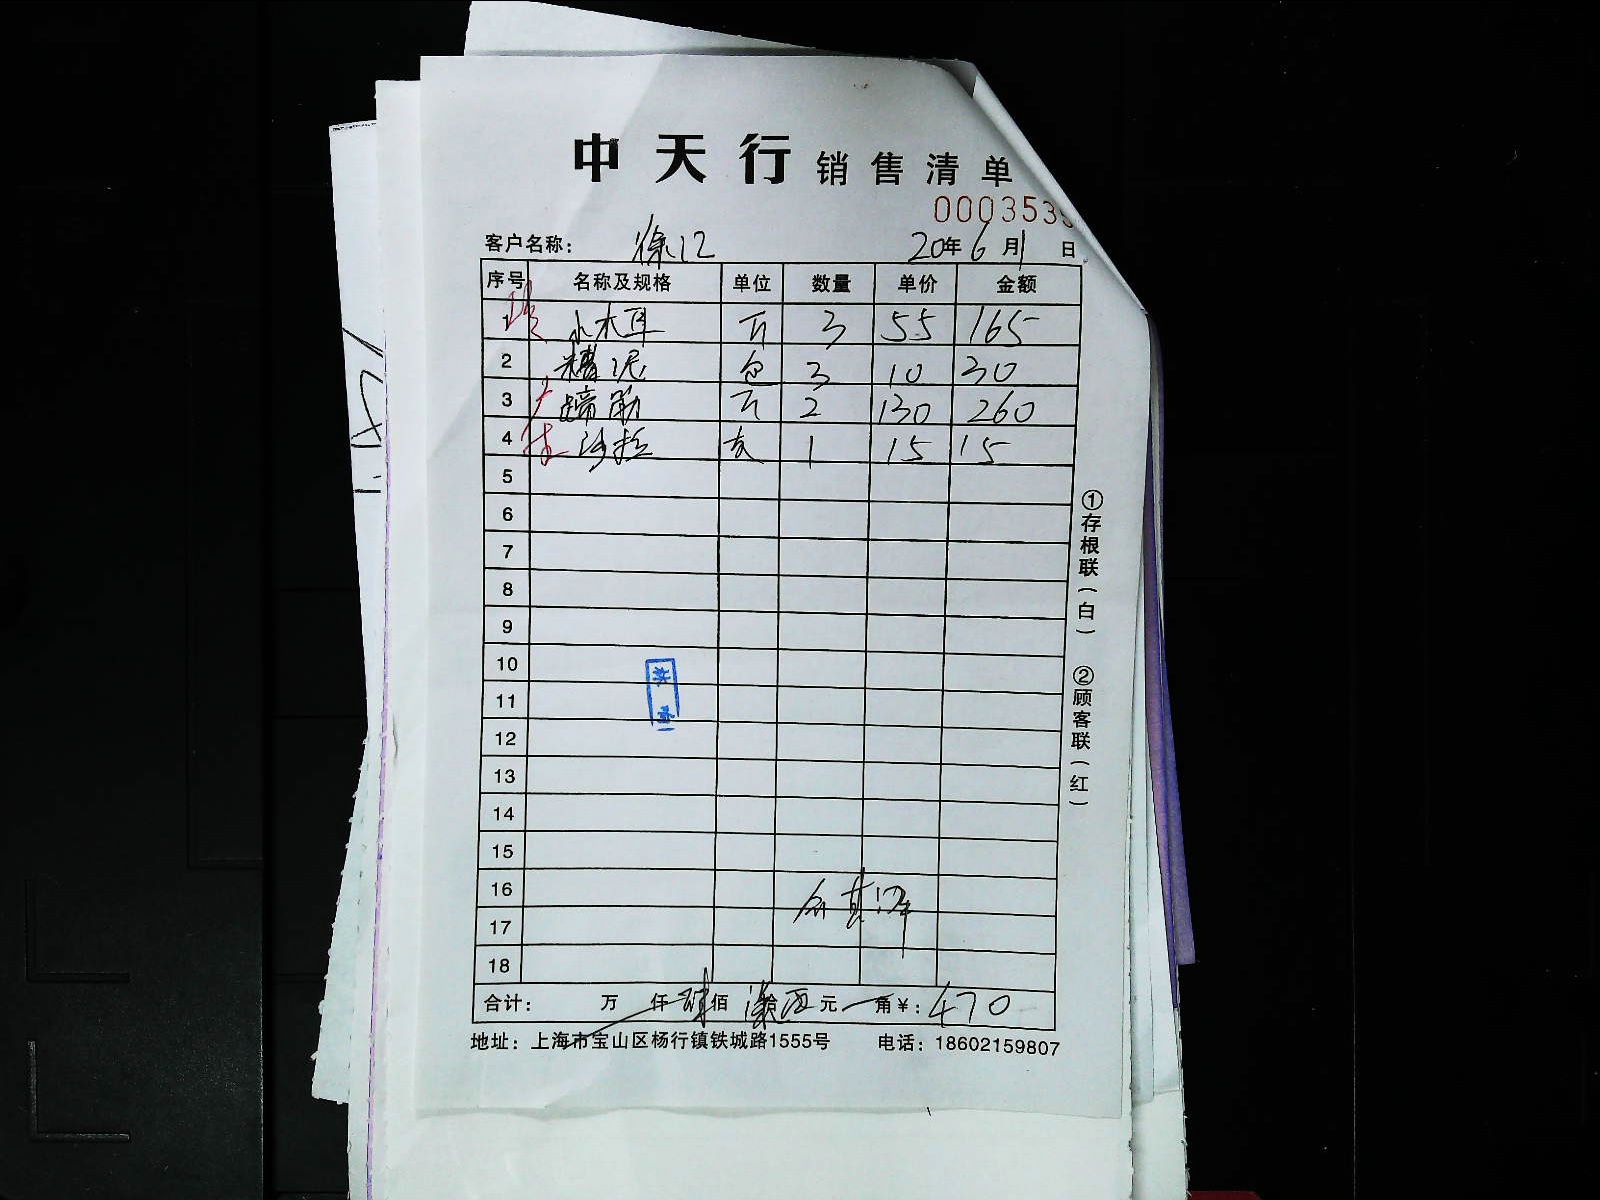 中天行 销售清单
000353
客户名称: 徐汇 20年6月1日
序号 名称及规格 单位 数量 单价 金额
1 小木耳 斤 3 55 165
2 糟泥 包 3 10 30
3 蹄筋 斤 2 130 260
4 沙拉 支 1 15 15
5
6
7
8
9
10
11
12
13
14
15
16
17
18
合计: 万 仟 肆佰 柒拾 元 角¥: 470
地址: 上海市宝山区杨行镇铁城路1555号 电话: 18602159807
①存根联(白) ②顾客联(红)